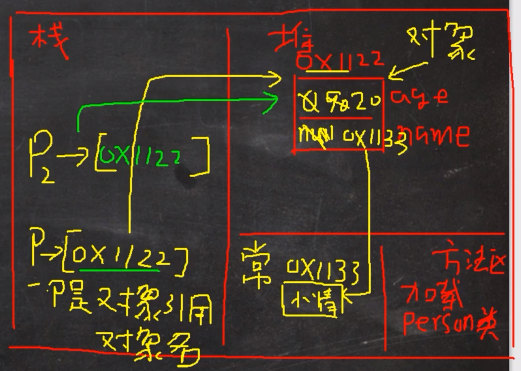 栈
堆
对象
0X1122
20 age
0X1133 name
P2→[0X1122]
P→[0X1122]
P是对象引用
对象名
常 0X1133
小倩
方法区
加载
person类